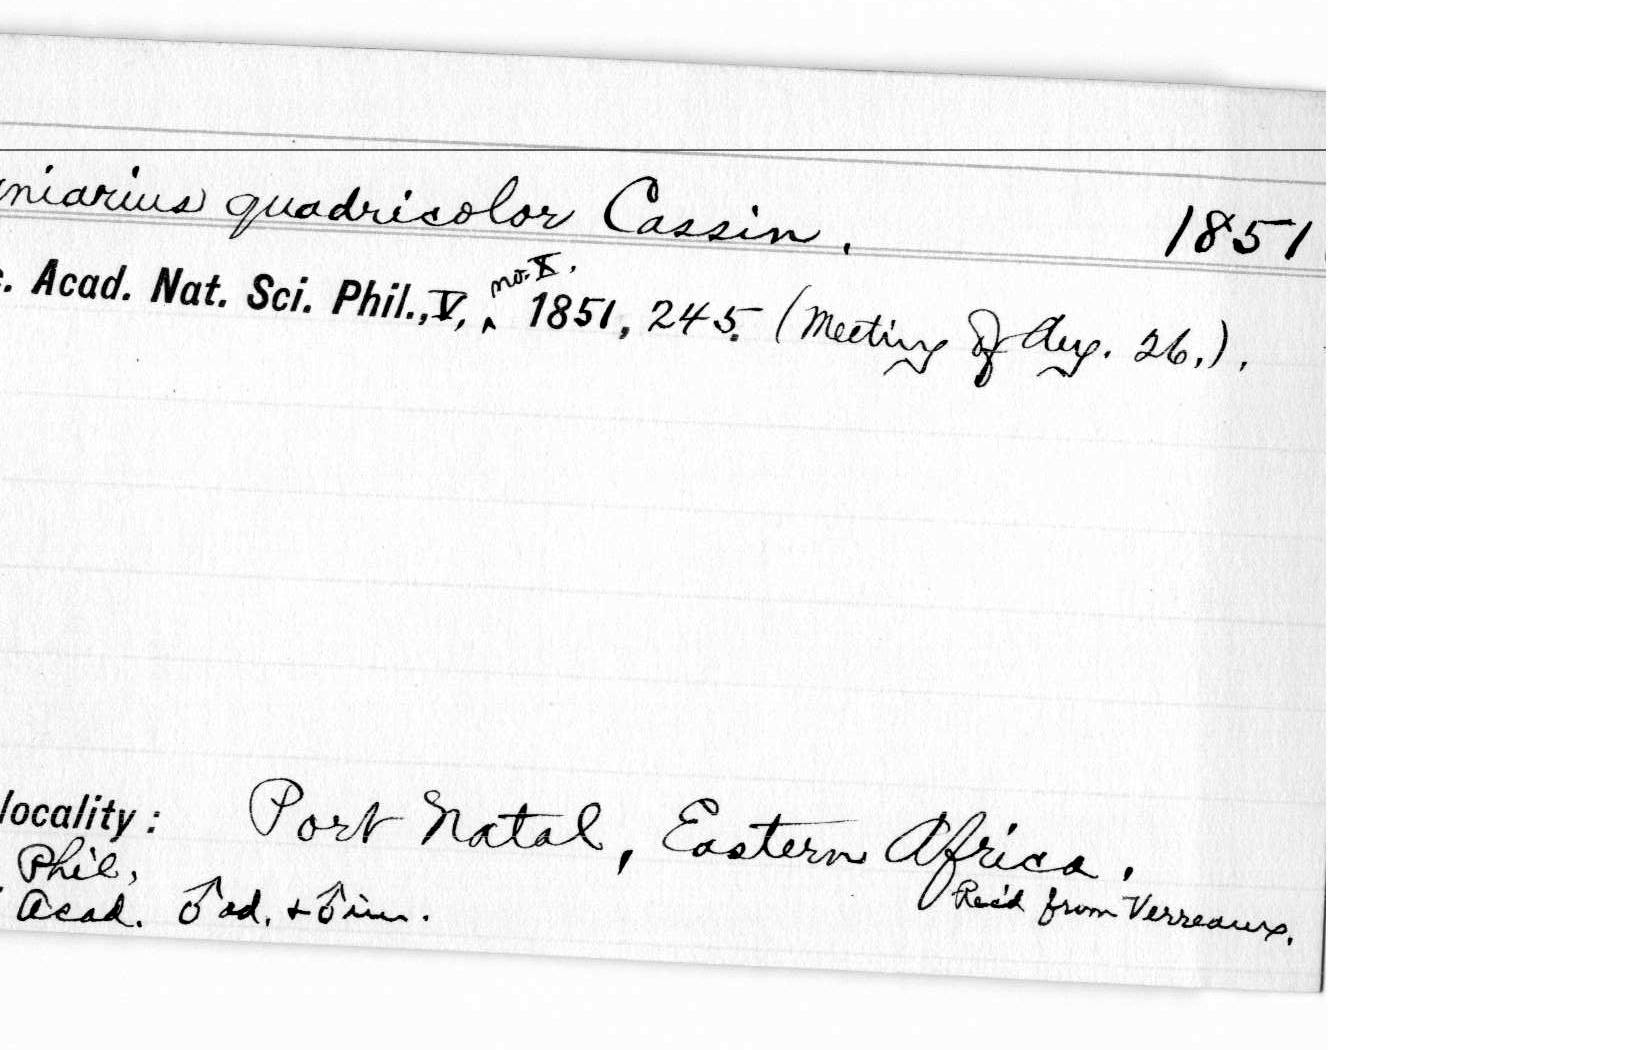 niarius quadricolor Cassin. 1851
c. Acad. Nat. Sci. Phil., V, ‸ no. X. 1851, 245. (Meeting of Aug. 26.).
locality: Port Natal, Eastern Africa.
Phil, Rec'd from Verreaux.
Acad. ♂ ad. + ♂ im.